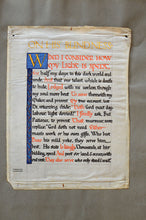 ON HIS BLINDNESS
When I consider how
my light is spent,
Ere half my days in this dark world and
wide, And that one talent which is death
to hide, Lodged with me useless, though
my soul more bent To serve therewith my
Maker, and present My true account, lest
He returning chide; 'Doth God exact day-
labour, light denied?' I fondly ask; But
Patience, to prevent That murmur, soon
replies, 'God doth not need Either
man's work or his own gifts. Who best
bear his mild yoke, they serve him
best. His state Is kingly. Thousands at his
bidding speed, And post o'er land and ocean
without rest; They also serve who only stand and wait.'